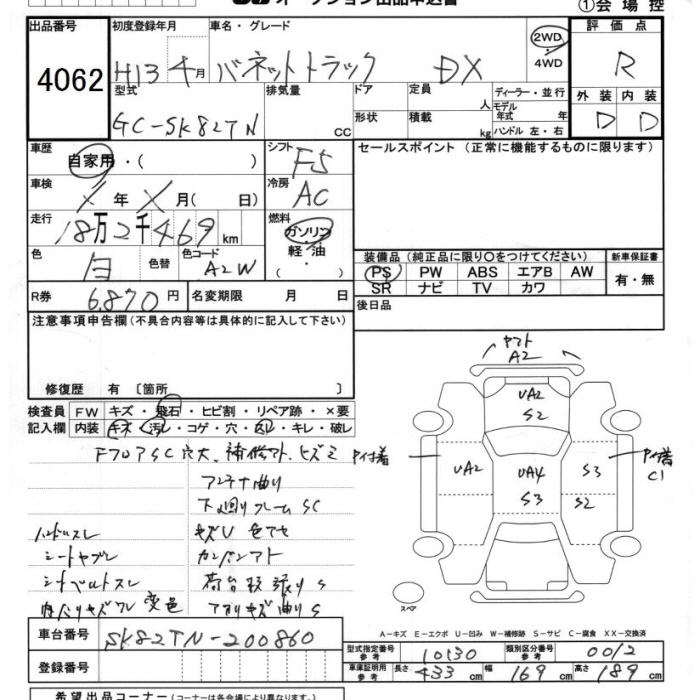 オークション出品申込書
①会場控
出品番号 初度登録年月 車名・グレード 2WD・4WD 評価点
4062 H13年4月 バネットトラック DX R
型式 排気量 ドア 定員 ディーラー・並行 外装 内装
GC-SK82TN cc 形状 積載 人 kg モデル年式 年 ハンドル 左・右 D D
車歴 自家用・( ) シフト F5 セールスポイント (正常に機能するものに限ります)
車検 X年X月( 日) 冷房 AC
走行 18万2千469km 燃料 ガソリン・軽油・( )
色 白 色替 色コード A2W
装備品(純正品に限り○をつけてください) 新車保証書
PS PW ABS エアB AW 有・無
SR ナビ TV カワ
R券 6,870円 名変期限 月 日 後日品
注意事項申告欄(不具合内容等は具体的に記入して下さい)
修復歴 有 [箇所 ]
検査員記入欄 FW キズ・飛石・ヒビ割・リペア跡・×要
内装 キズ・汚レ・コゲ・穴・凹・キレ・破レ
FフロアSC穴大、補修アト、ヒズミ
アンテナ曲り
下廻りフレームSC
ハンドルスレ キズU 色アセ
シートヤブレ カンバンアト
シートベルトスレ 荷台 S
内バリキズワレ 変色 アオリキズ曲りS
ヤブト
A2
UA2
S2
UA2 UA4 S3
S3 S2
C1
スペア
A-キズ E-エクボ U-凹み W-補修跡 S-サビ C-腐食 XX-交換済
車台番号 SK82TN-200860
登録番号
型式指定番号 参考 10530 類別区分番号 参考 0012
車庫証明用 参考 長さ 433cm 幅 169cm 高さ 189cm
希望出品コーナー(コーナーは各会場により異なります)